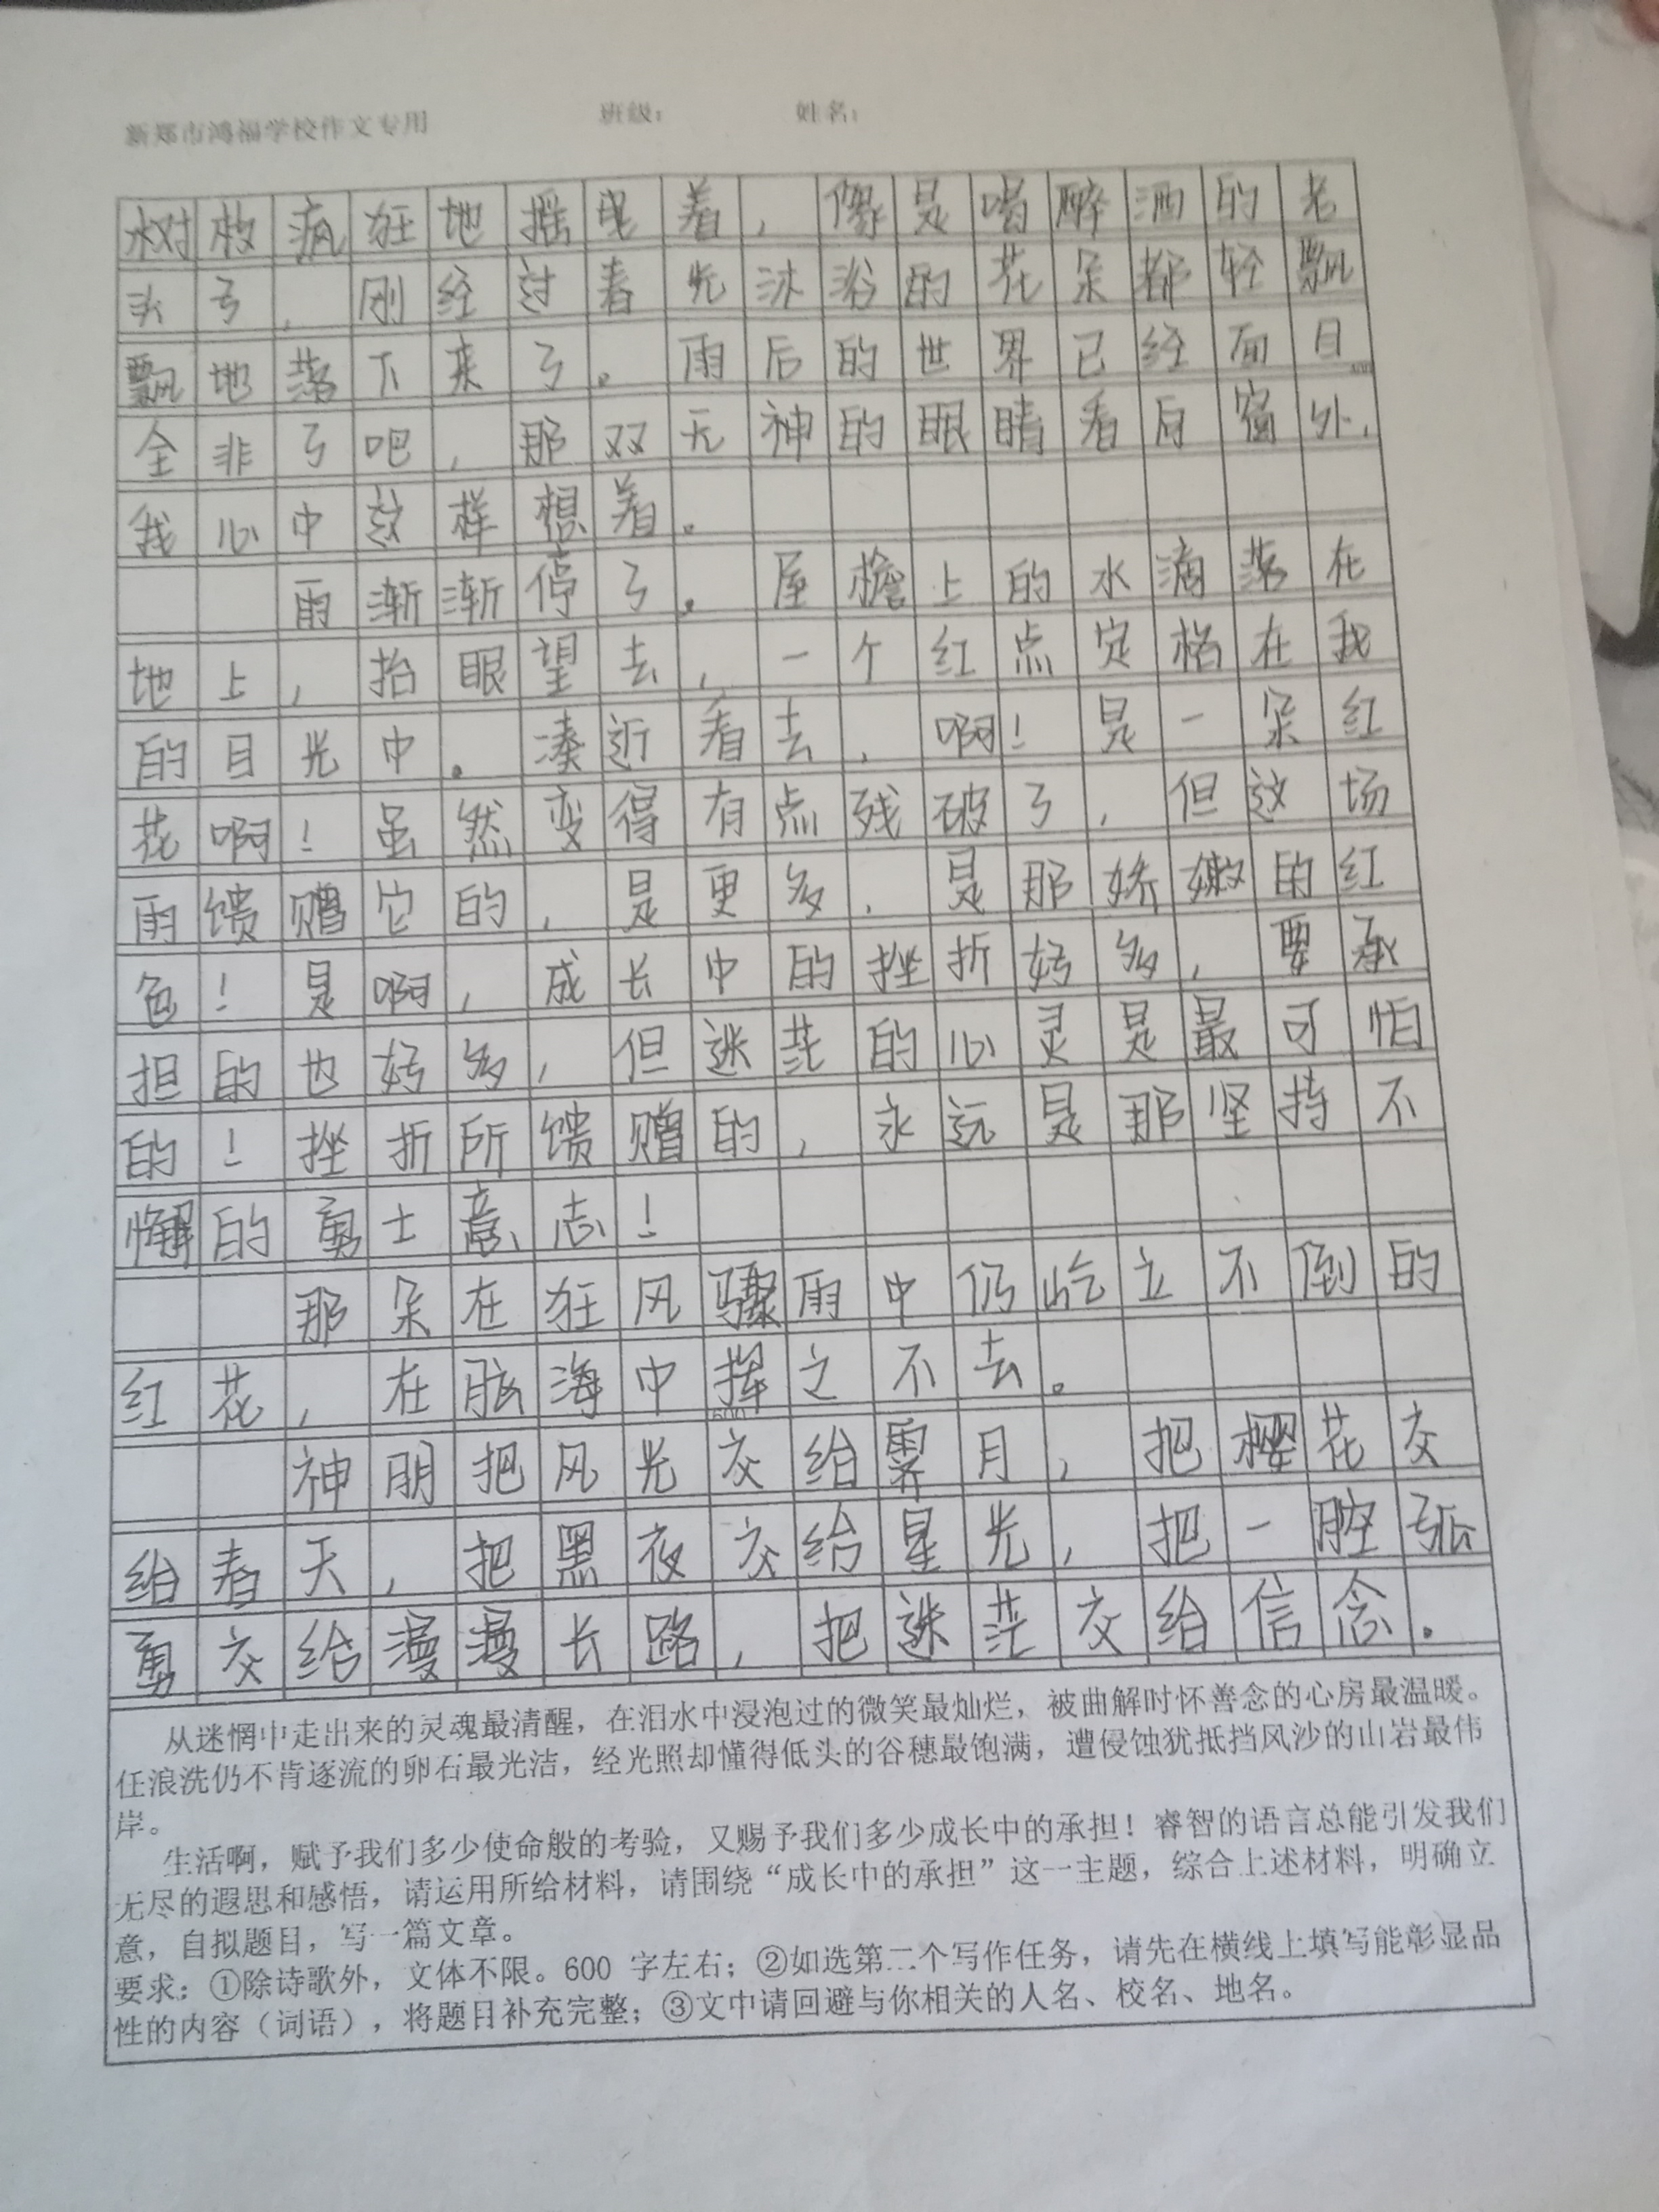 新郑市鸿福学校作文专用 班级： 姓名：
树枝疯狂地摇曳着，像是喝醉酒的老
头了，刚经过春光沐浴的花朵都轻飘
飘地落下来了。雨后的世界已经面目
全非了吧，那双无神的眼睛看向窗外，
我心中这样想着。
雨渐渐停了。屋檐上的水滴落在
地上，抬眼望去，一个红点定格在我
的目光中。凑近看去，啊！是一朵红
花啊！虽然变得有点残破了，但这场
雨馈赠它的，是更多，是那娇嫩的红
色！是啊，成长中的挫折好多，要承
担的也好多，但迷茫的心灵是最可怕
的！挫折所馈赠的，永远是那坚持不
懈的勇士意志！
那朵在狂风骤雨中仍屹立不倒的
红花，在脑海中挥之不去。
600
神明把风光交给霁月，把樱花交
给春天，把黑夜交给星光，把一腔孤
勇交给漫漫长路，把迷茫交给信念。
从迷惘中走出来的灵魂最清醒，在泪水中浸泡过的微笑最灿烂，被曲解时怀善念的心房最温暖。
任浪洗仍不肯逐流的卵石最光洁，经光照却懂得低头的谷穗最饱满，遭侵蚀犹抵挡风沙的山岩最伟
岸。
生活啊，赋予我们多少使命般的考验，又赐予我们多少成长中的承担！睿智的语言总能引发我们
无尽的遐思和感悟，请运用所给材料，请围绕“成长中的承担”这一主题，综合上述材料，明确立
意，自拟题目，写一篇文章。
要求：①除诗歌外，文体不限。600 字左右；②如选第二个写作任务，请先在横线上填写能彰显品
性的内容（词语），将题目补充完整；③文中请回避与你相关的人名、校名、地名。